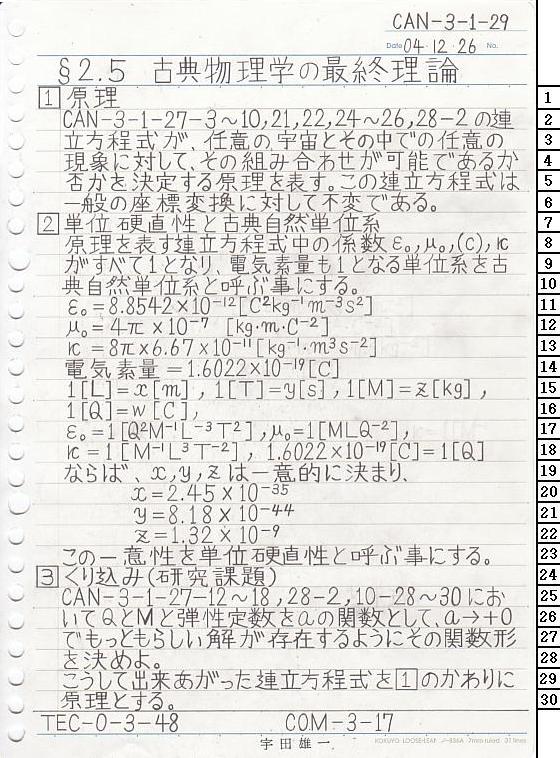 CAN-3-1-29
Date 04・12・26 No.
§2.5 古典物理学の最終理論
1 原理
CAN-3-1-27-3～10,21,22,24～26,28-2の連
立方程式が、任意の宇宙とその中での任意の
現象に対して、その組み合わせが可能であるか
否かを決定する原理を表す。この連立方程式は
一般の座標変換に対して不変である。
2 単位硬直性と古典自然単位系
原理を表す連立方程式中の係数ε₀,μ₀,(c),κ
がすべて1となり、電気素量も1となる単位系を古
典自然単位系と呼ぶ事にする。
ε₀=8.8542×10⁻¹²[C²kg⁻¹m⁻³s²]
μ₀=4π×10⁻⁷ [kg・m・C⁻²]
κ=8π×6.67×10⁻¹¹[kg⁻¹・m³s⁻²]
電気素量=1.6022×10⁻¹⁹[C]
1[L]=x[m], 1[T]=y[s], 1[M]=z[kg],
1[Q]=w[C],
ε₀=1[Q²M⁻¹L⁻³T²],μ₀=1[MLQ⁻²],
κ=1[M⁻¹L³T⁻²], 1.6022×10⁻¹⁹[C]=1[Q]
ならば、x,y,zは一意的に決まり、
x=2.45×10⁻³⁵
y=8.18×10⁻⁴⁴
z=1.32×10⁻⁹
この一意性を単位硬直性と呼ぶ事にする。
3 くり込み(研究課題)
CAN-3-1-27-12～18,28-2,10-28～30にお
いてQとMと弾性定数をaの関数として、a→+0
でもっともらしい解が存在するようにその関数形
を決めよ。
こうして出来あがった連立方程式を1のかわりに
原理とする。
TEC-0-3-48 COM-3-17
宇田雄一
KOKUYO LOOSE-LEAF ノ-836A 7mm ruled 31 lines
1
2
3
4
5
6
7
8
9
10
11
12
13
14
15
16
17
18
19
20
21
22
23
24
25
26
27
28
29
30